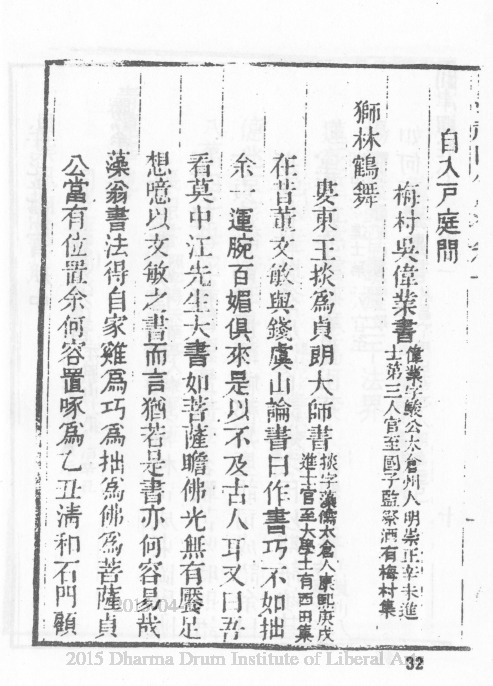 自入戸庭間
梅村吳偉業書偉業字駿公太倉州人明崇正辛未進
士第三人官至國子監祭酒有梅村集
獅林鶴舞
婁東王掞爲貞朗大師書掞字藻儒太倉人康熙庚戌
進士官至大學士有西田集
在昔董文敏與錢虞山論書曰作書巧不如拙
余一運腕百媚俱來是以不及古人耳又曰吾
看莫中江先生大書如菩薩瞻佛光無有厭足
想噫以文敏之書而言猶若是書亦何容易哉
藻翁書法得自家雞爲巧爲拙爲佛爲菩薩貞
公當有位置余何容置啄爲乙丑淸和石門顧
32
2015 Dharma Drum Institute of Liberal Arts